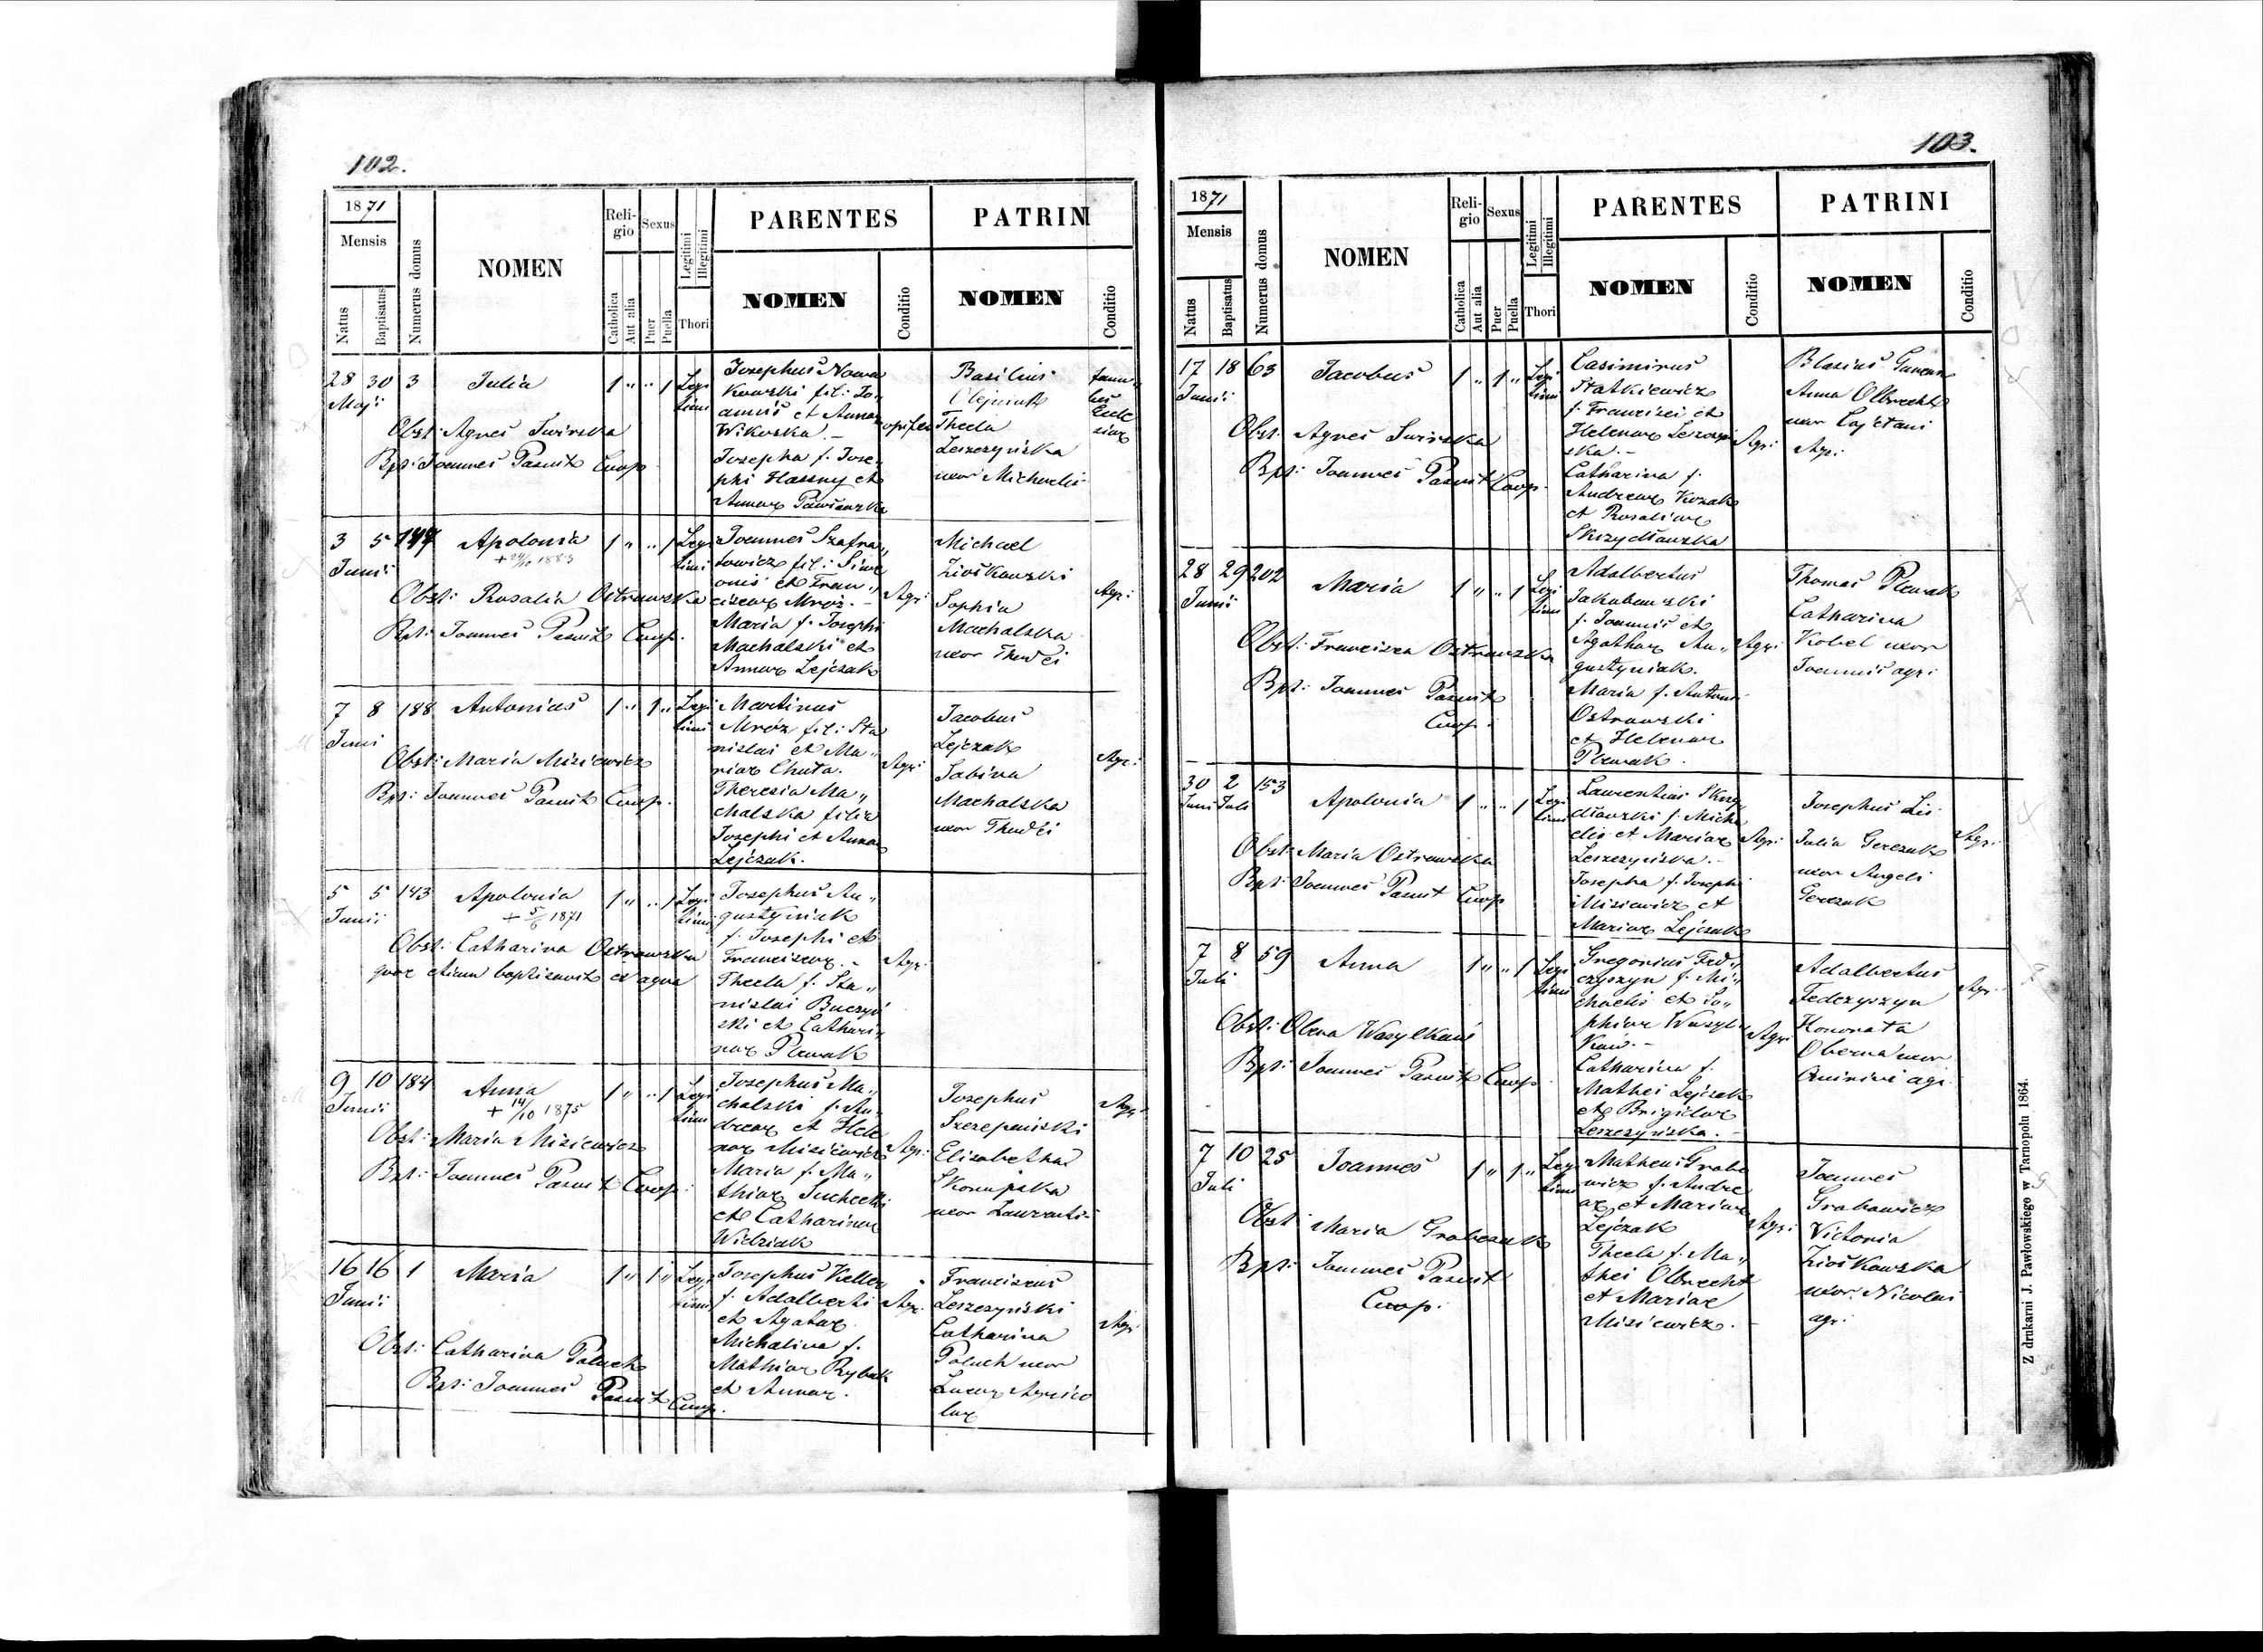 102.
1871
Mensis
Natus
Baptisatus
Numerus domus
NOMEN
Reli-
gio
Catholica
Aut alia
Sexus
Puer
Puella
Legitimi
Illegitimi
Thori
PARENTES
NOMEN
Conditio
PATRIN
NOMEN
Conditio
28 30 3 Julia 1 " " 1 Legi
Maji timi
Obst: Agnes Swirska
Bpt: Joannes Pasnit Coop
Josephus Nowa
kowski fil: Jo-
annis et Annae
Wikorska.-
Josepha f. Jose-
phi Hassny et
Annae
opifex
Basilius
Olejnik
Thecla
Leszczyńska
uxor Michaelis
famu-
lus
Eccle
siae
3 5 147 Apolonia 1 " " 1 Legi
Junii timi
1883
Obst: Rosalia Ostrowska
Bpt: Joannes Pasnit Coop.
Joannes Szafra"
fil: Sime
onis et Fran"
ciscae Mróz.-
Maria f. Josephi
Machalski et
Annae Lejczak
Agr:
Michael
Ziołkowski
Sophia
Machalska
uxor
Agr:
7 8 188 Antonius 1 " 1 " Legi
Junii timi
Obst: Maria Misiewicz
Bpt: Joannes Pasnit Coop.
Martinus
Mróz fil: Sta
nislai et Ma"
riae Chuta.
Theresia Ma"
chalska filia
Josephi et Annae
Lejczak.
Agr:
Jacobus
Lejczak
Sabina
Machalska
uxor
Agr:
5 5 143 Apolonia 1 " " 1 Legi
Junii timi
+ 5/6 1871
Obst: Catharina Ostrowska
quae etiam baptisavit ex aqua
Josephus Au"
gustyniak
f. Josephi et
Franciscae.-
Thecla f. Sta"
nislai Buczyń
ski et Cathari"
nae Plewak
Agr.
9 10 184 Anna 1 " " 1 Legi
Junii timi
+ 14/10 1875
Obst: Maria Misiewicz
Bpt: Joannes Pasnit Coop:
Josephus Ma"
chalski f. An"
dreae et Hele
nae Misiewicz
Maria f. Ma"
thiae Suchecki
et Catharinae
Widziak
Agr:
Josephus
Szczepański
Elisabetha
Skorupska
uxor Laurentii
Agr:
16 16 1 Maria 1 " 1 " Legi
Junii timi
Obst: Catharina Paluch
Bpt: Joannes Pasnit Coop.
Josephus Keller
f. Adalberti
et Agatae
Michalina f.
Mathiae Rybak
et Annae.
Agr.
Franciscus
Leszczyński
Catharina
Paluch uxor
Lucae Agrico
lae
Agr:
103.
1871
Mensis
Natus
Baptisatus
Numerus domus
NOMEN
Reli-
gio
Catholica
Aut alia
Sexus
Puer
Puella
Legitimi
Illegitimi
Thori
PARENTES
NOMEN
Conditio
PATRINI
NOMEN
Conditio
17 18 63 Jacobus 1 " 1 " Legi
Junii timi
Obst: Agnes Swirska
Bpt: Joannes Pasnit Coop.
Casimirus
Statkiewicz
f. Francisci et
Helenae
ska.-
Catharina f.
Andreae Kozak
et Rosaliae
Skrzydłowska
Agr:
Blasius
Anna Olbrecht
uxor Cajetani
Agr:
28 29 202 Maria 1 " " 1 Legi
Junii timi
Obst: Francisca Ostrowska
Bpt: Joannes Pasnit
Coop:
Adalbertus
Jakubowski
f. Joannis et
Agathae Au"
gustyniak.
Maria f. Antoni
Ostrowski
et Helenae
Plewak.
Agr:
Thomas Plewak
Catharina
Kobel uxor
Joannis agr:
30 2 153 Apolonia 1 " " 1 Legi
Junii Juli timi
Obst: Maria Ostrowska
Bpt: Joannes Pasnit Coop
Laurentius Skrzy
dłowski f. Micha
elis et Mariae
Leszczyńska.-
Josepha f. Josephi
Misiewicz et
Mariae Lejczak
Agr:
Josephus Lis
Julia Gerczak
uxor Angeli
Gerczak
Agr:
7 8 59 Anna 1 " " 1 Legi
Juli timi
Obst: Olena Wasylkow
Bpt: Joannes Pasnit Coop
Gregorius Fed"
czyszyn f. Mi"
chaelis et So"
phiae Wasyl
kow.-
Catharina f.
Mathei Lejczak
et Brigidae
Leszczyńska.-
Agr:
Adalbertus
Fedczyszyn
Honorata
Oberna uxor
Quirini agr.
Agr.
7 10 25 Joannes 1 " 1 " Legi
Juli timi
Obst: Maria Grabczak
Bpt: Joannes Pasnit
Coop.
Matheus Grabo
wicz f. Andre
ae et Mariae
Lejczak
Thecla f. Ma"
thei Olbrecht
et Mariae
Misiewicz.
Agr:
Joannes
Grabowicz
Victoria
Ziołkowska
uxor Nicolai
agr:
Z drukarni J. Pawłowskiego w Tarnopolu 1864.